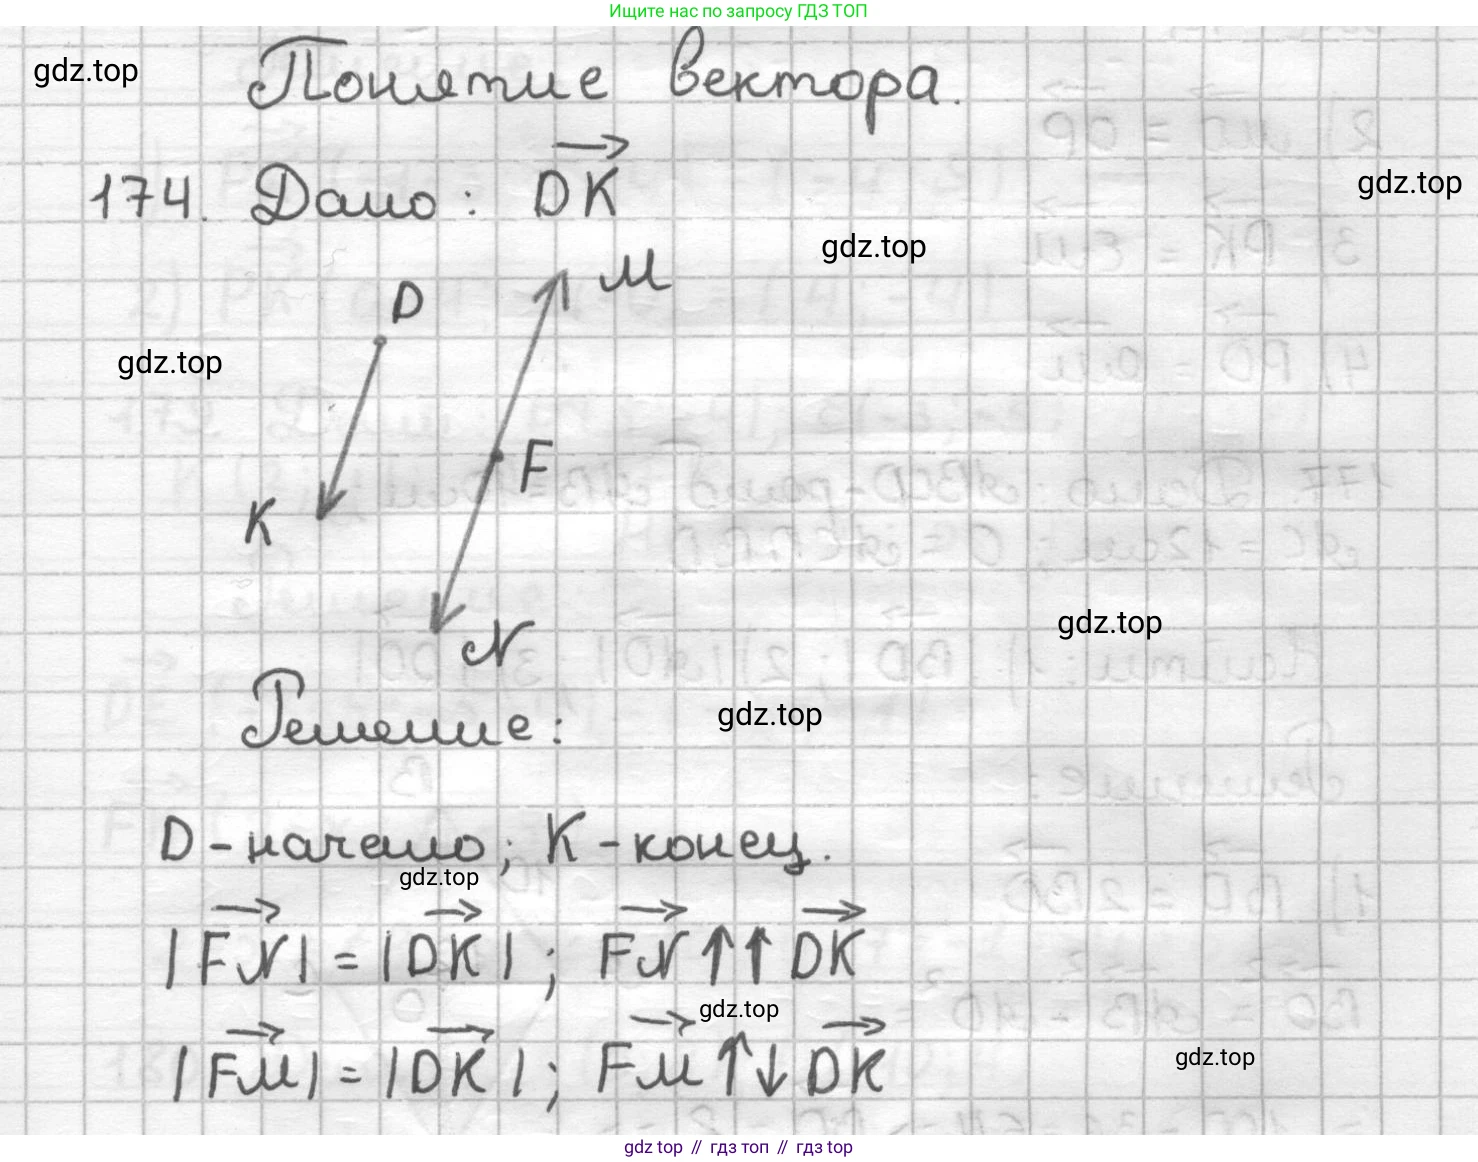 Ищите нас по запросу ГДЗ ТОП
Понятие вектора.
gdz.top
174. Дано: DK
gdz.top
gdz.top
M
D
gdz.top
F
K
gdz.top
N
Решение:
gdz.top
D-начало; K-конец.
gdz.top
|FN| = |DK|; FN ↑↑ DK
gdz.top
|FM| = |DK|; FM ↑↓ DK
gdz.top
gdz top // гдз топ // гдз top